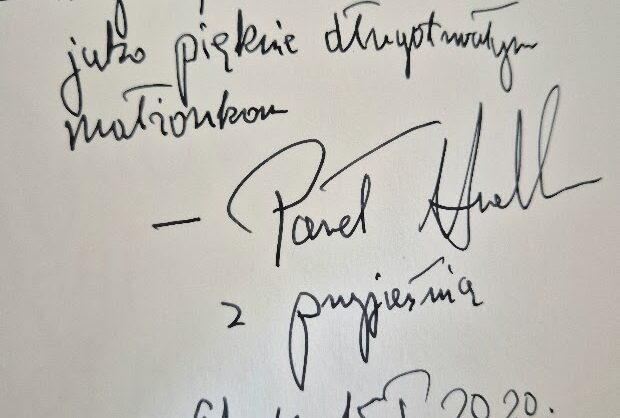 jako pięknie długotrwałym
małżonkom
— Paweł
z przyjaźnią
2020.